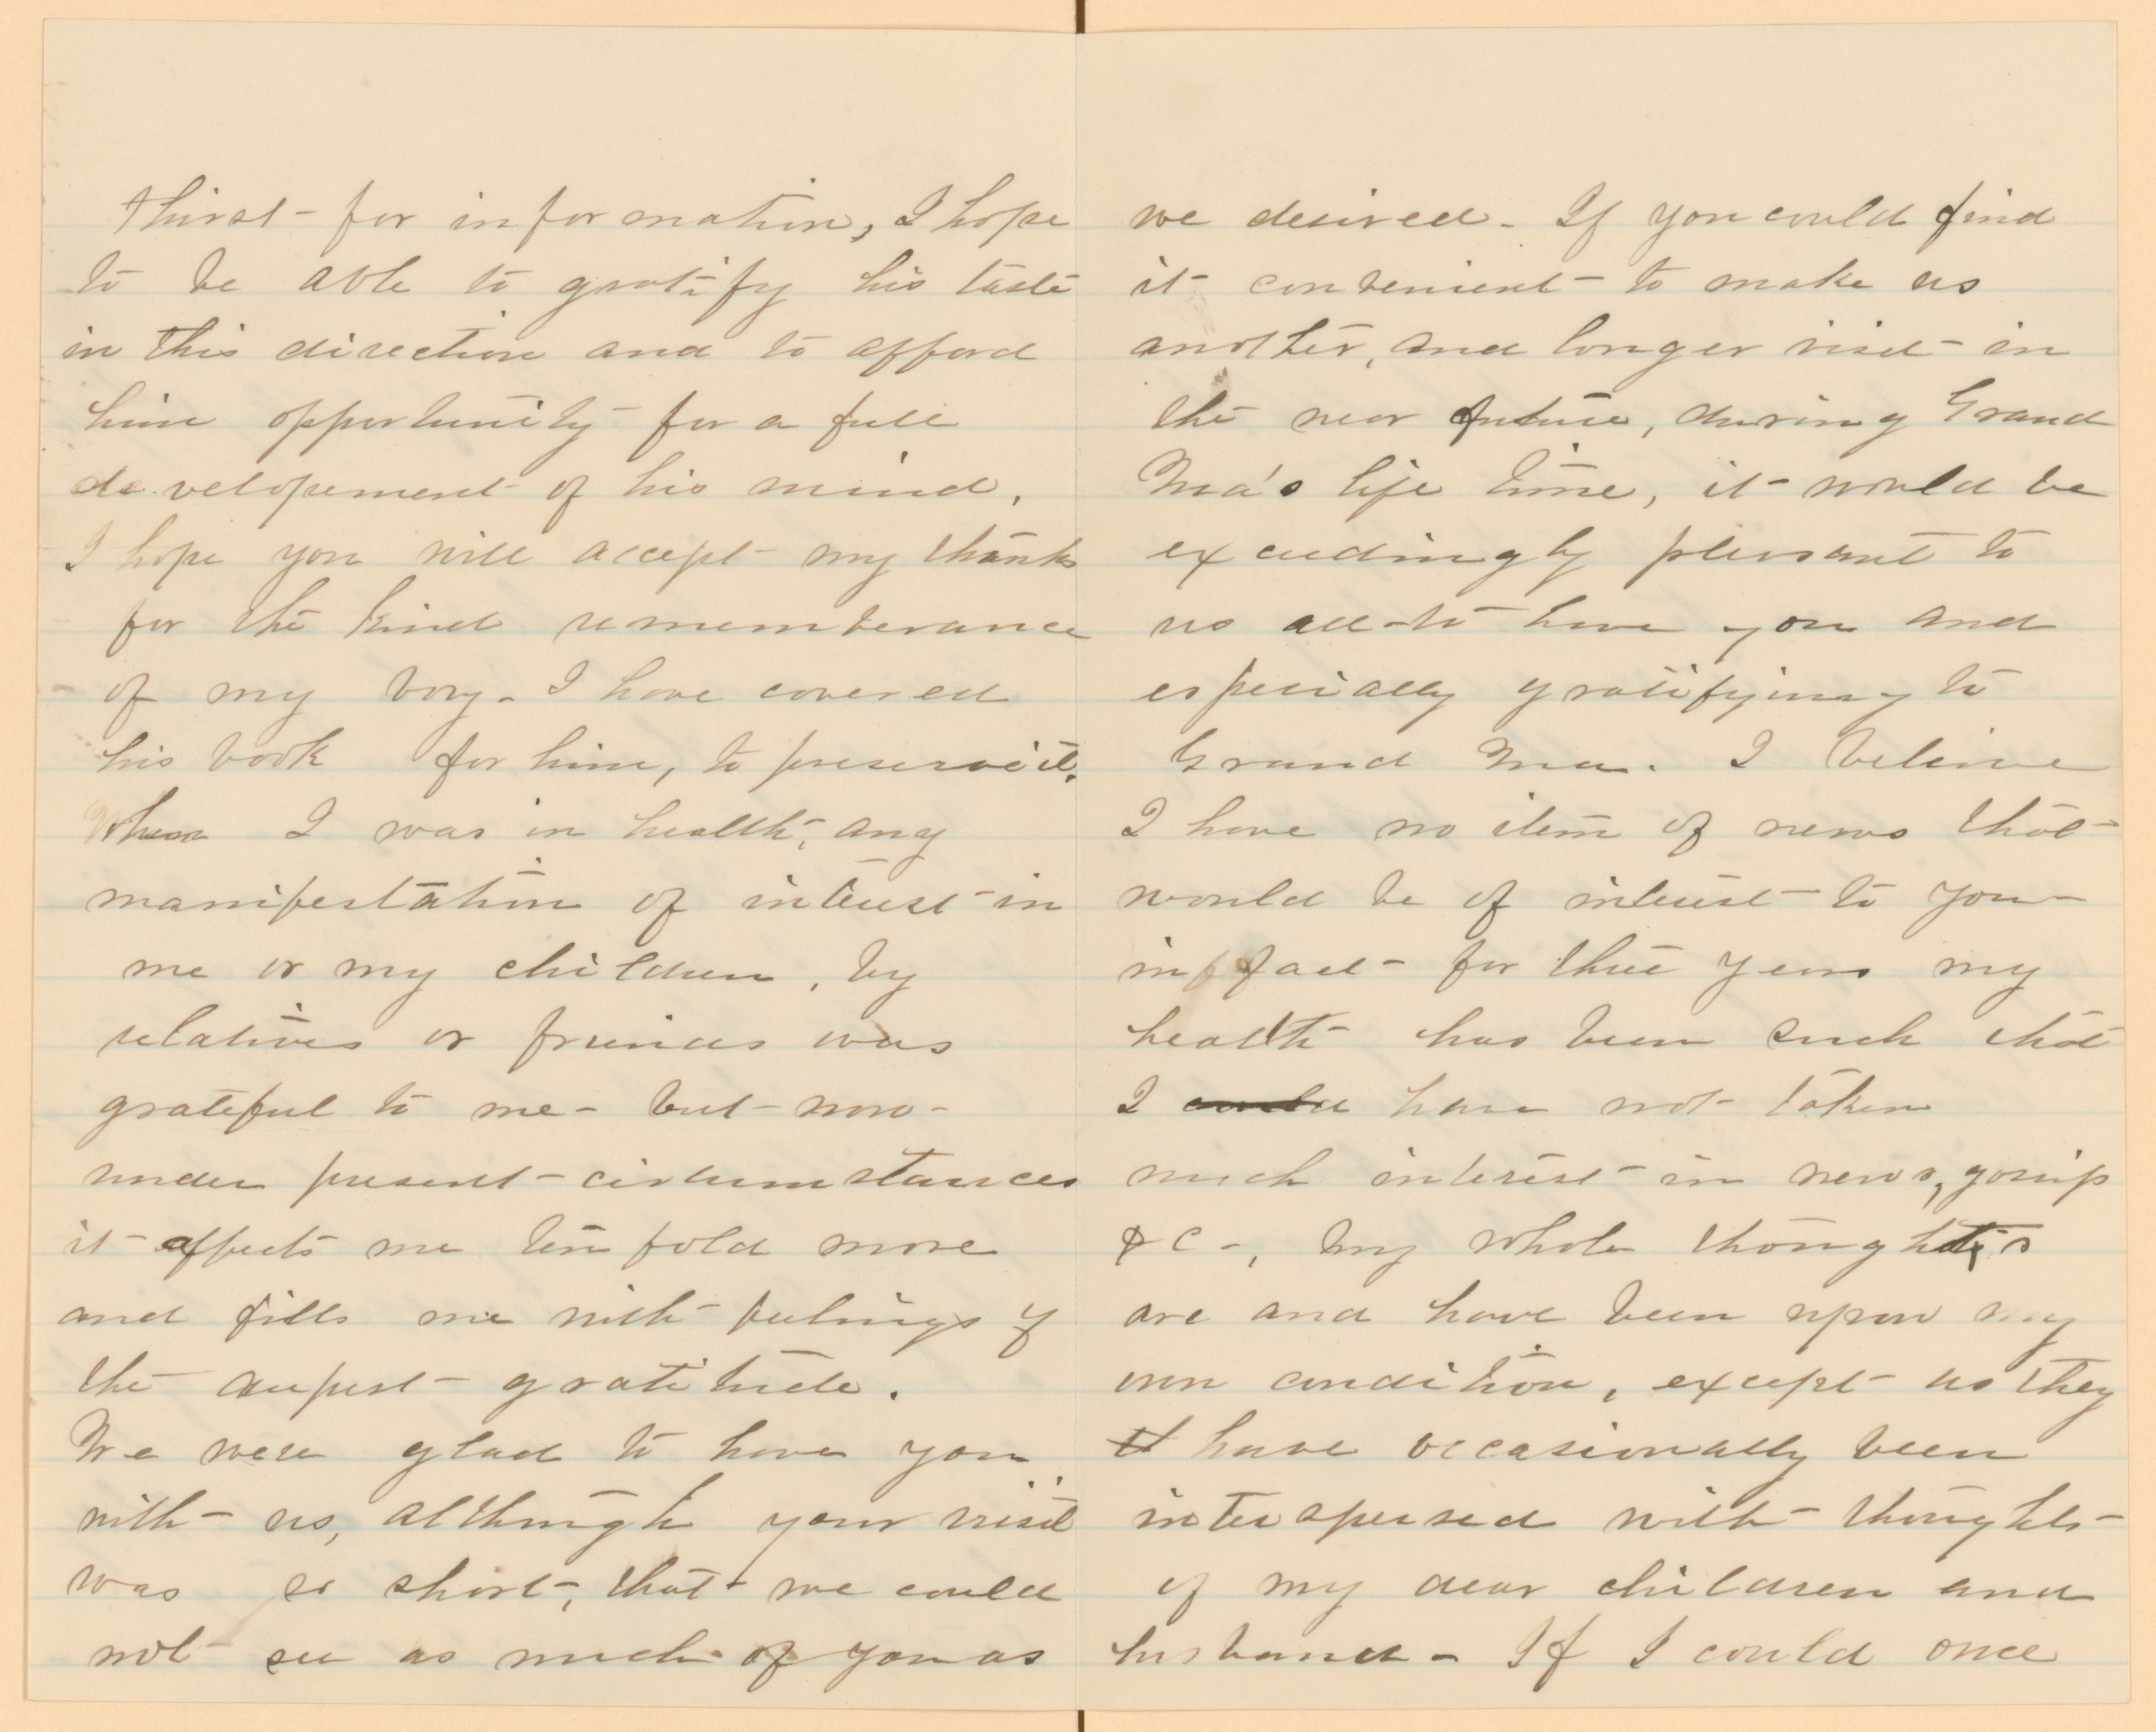 thirst - for information, I hope
to be able to gratify his taste
in this direction and to afford
him opportunity for a full
developement of his mind.
I hope you will accept my thanks
for the kind rememberance
of my boy - I have covered
his book for him, to preserve it.
When I was in health, any
manifestation of interest in
me or my children, by
relatives or friends was
grateful to me - but now -
under present circumstances
it affects me ten fold more
and fills me with feelings of
the deepest gratitude.
We were glad to have you
with us, although your visit
was so short, that we could
not see as much of you as
we desired - If you could find
it convenient to make us
another, and longer visit in
the near future, during Grand
Ma's life time, it would be
exceedingly pleasant to
us all to have you and
especially gratifying to
Grand Ma. I believe
I have no item of news that
would be of interest to you -
in fact for three years my
health has been such that
I could have not taken
much interest in news, gossip
&c -, my whole thoughts
are and have been upon my
own condition, except as they
have occasionally been
interspersed with thoughts -
of my dear children and
husband - If I could once